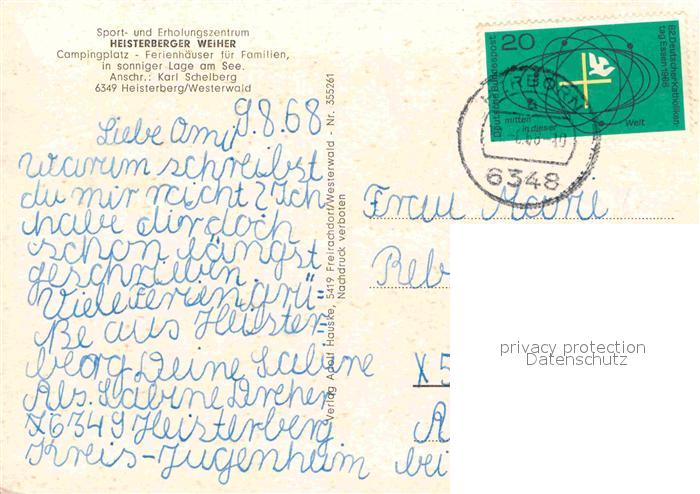 Sport- und Erholungszentrum
HEISTERBERGER WEIHER
Campingplatz - Ferienhäuser für Familien,
in sonniger Lage am See.
Anschr.: Karl Schelberg
6349 Heisterberg/Westerwald
9.8.68
Liebe Omi
warum schreibst
du mir nicht? Ich
habe dir doch
schon längst
geschrieben.
Viele Feriengrü=
ße aus Heister=
berg Deine Sabine
Abs. Sabine Dreher
X6349 Heisterberg
Kreis-Jugenheim
Verlag Adolf Hauske, 5419 Freirachdorf/Westerwald - Nr. 355261
Nachdruck verboten
20
Deutsche Bundespost
82. Deutscher Katholiken
tag Essen 1968
mitten
in dieser
Welt
6348
Frau Marie
Reb
X 5
A
bei
privacy protection
Datenschutz